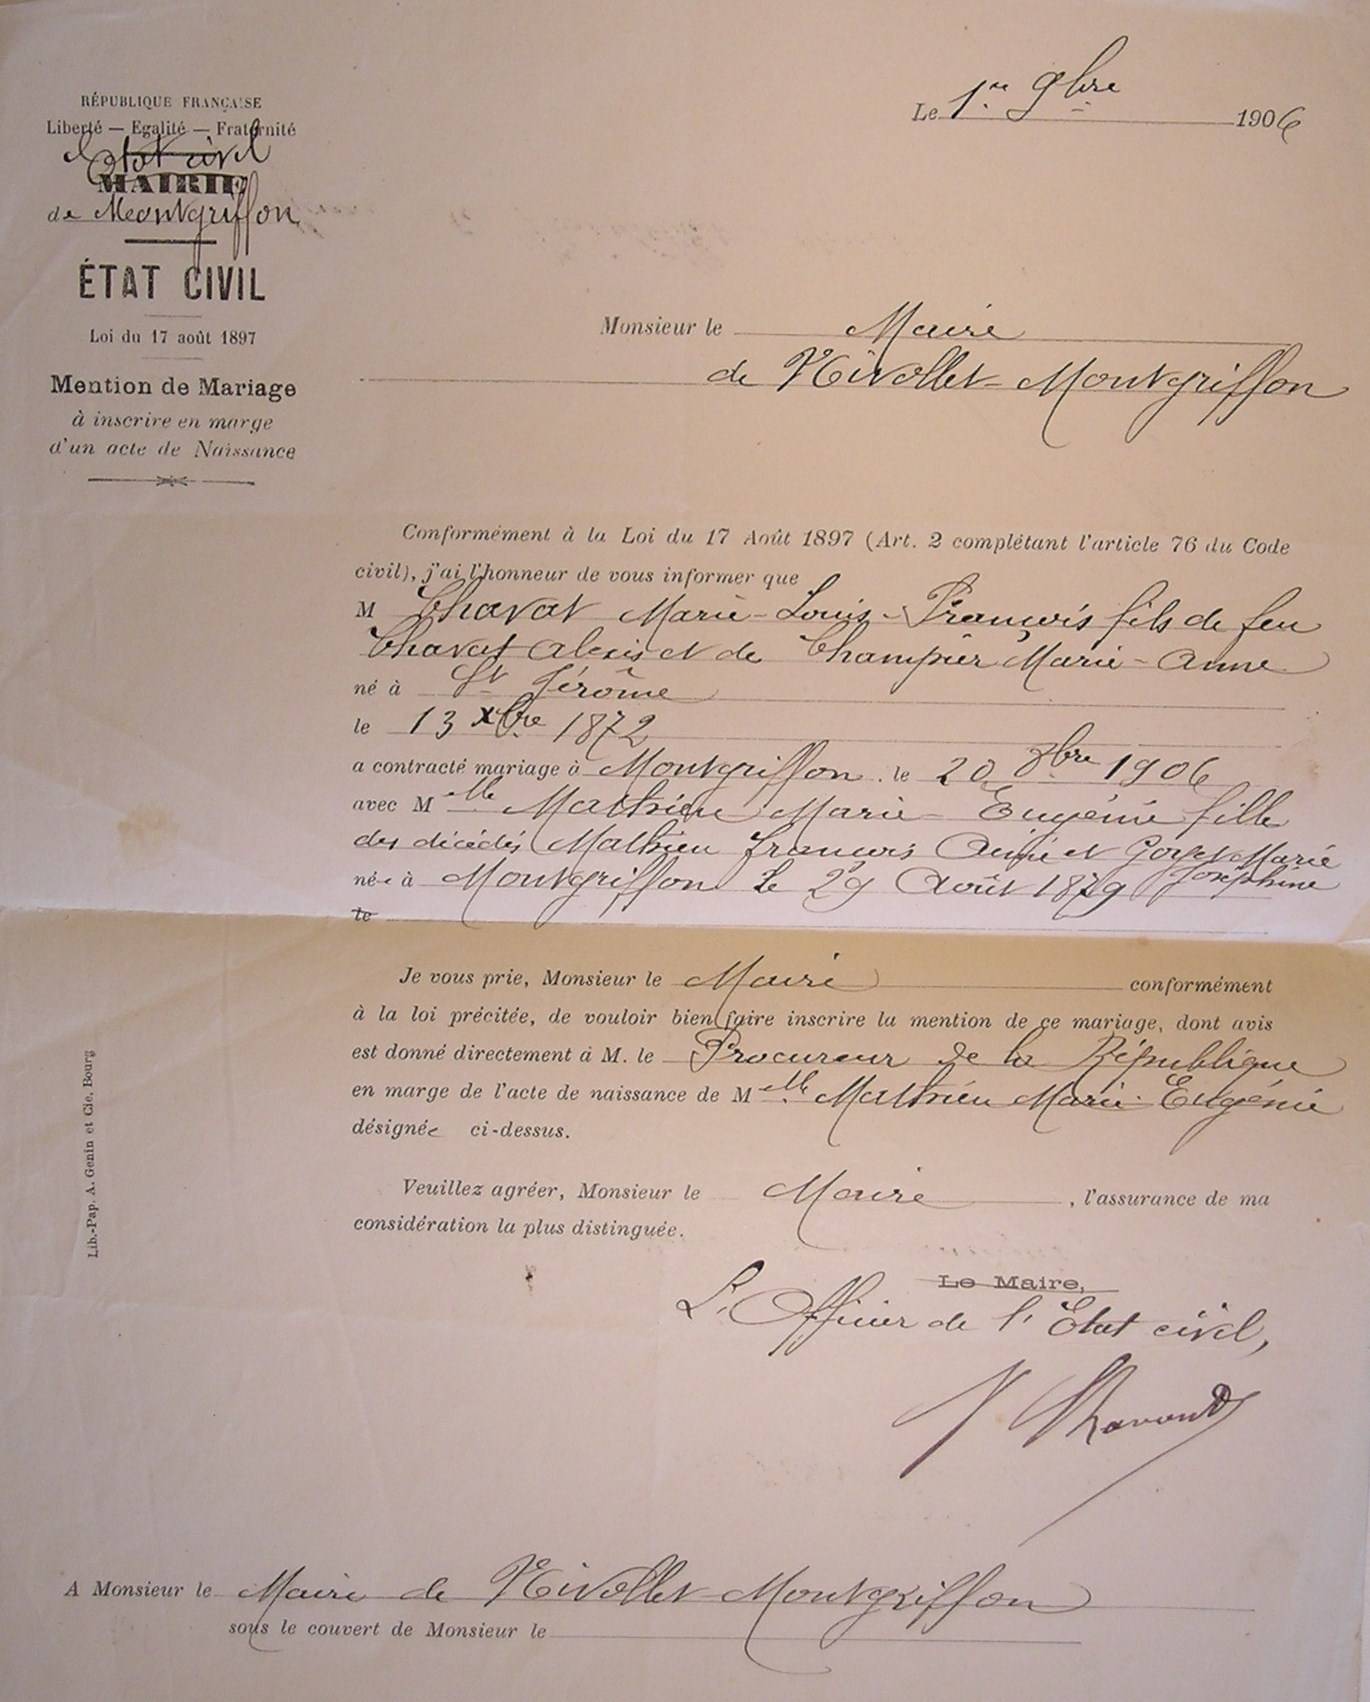 RÉPUBLIQUE FRANÇAISE
Liberté — Egalité — Fraternité
Etat civil
MAIRIE
de Montgriffon
ÉTAT CIVIL
Loi du 17 août 1897
Mention de Mariage
à inscrire en marge
d'un acte de Naissance
Le 1er 9bre 1906
Monsieur le Maire
de Nivollet-Montgriffon
Conformément à la Loi du 17 Août 1897 (Art. 2 complétant l'article 76 du Code
civil), j'ai l'honneur de vous informer que
M Chavat Marie-Louis-François fils de feu
Chavat Alexis et de Champier Marie-Anne
né à St Jérôme
le 13 xbre 1872
a contracté mariage à Montgriffon. le 20 8bre 1906
avec Mlle Mathieu Marie-Eugénie fille
des décédés Mathieu François Aimé et Goyet Marie
Joséphine
née à Montgriffon le 29 Août 1879
le
Je vous prie, Monsieur le Maire conformément
à la loi précitée, de vouloir bien faire inscrire la mention de ce mariage, dont avis
est donné directement à M. le Procureur de la République
en marge de l'acte de naissance de Mlle Mathieu Marie-Eugénie
désignée ci-dessus.
Veuillez agréer, Monsieur le Maire, l'assurance de ma
considération la plus distinguée.
Le Maire,
L'Officier de l'Etat civil,
A Monsieur le Maire de Nivollet-Montgriffon
sous le couvert de Monsieur le
Lib.-Pap. A. Genin et Cie, Bourg